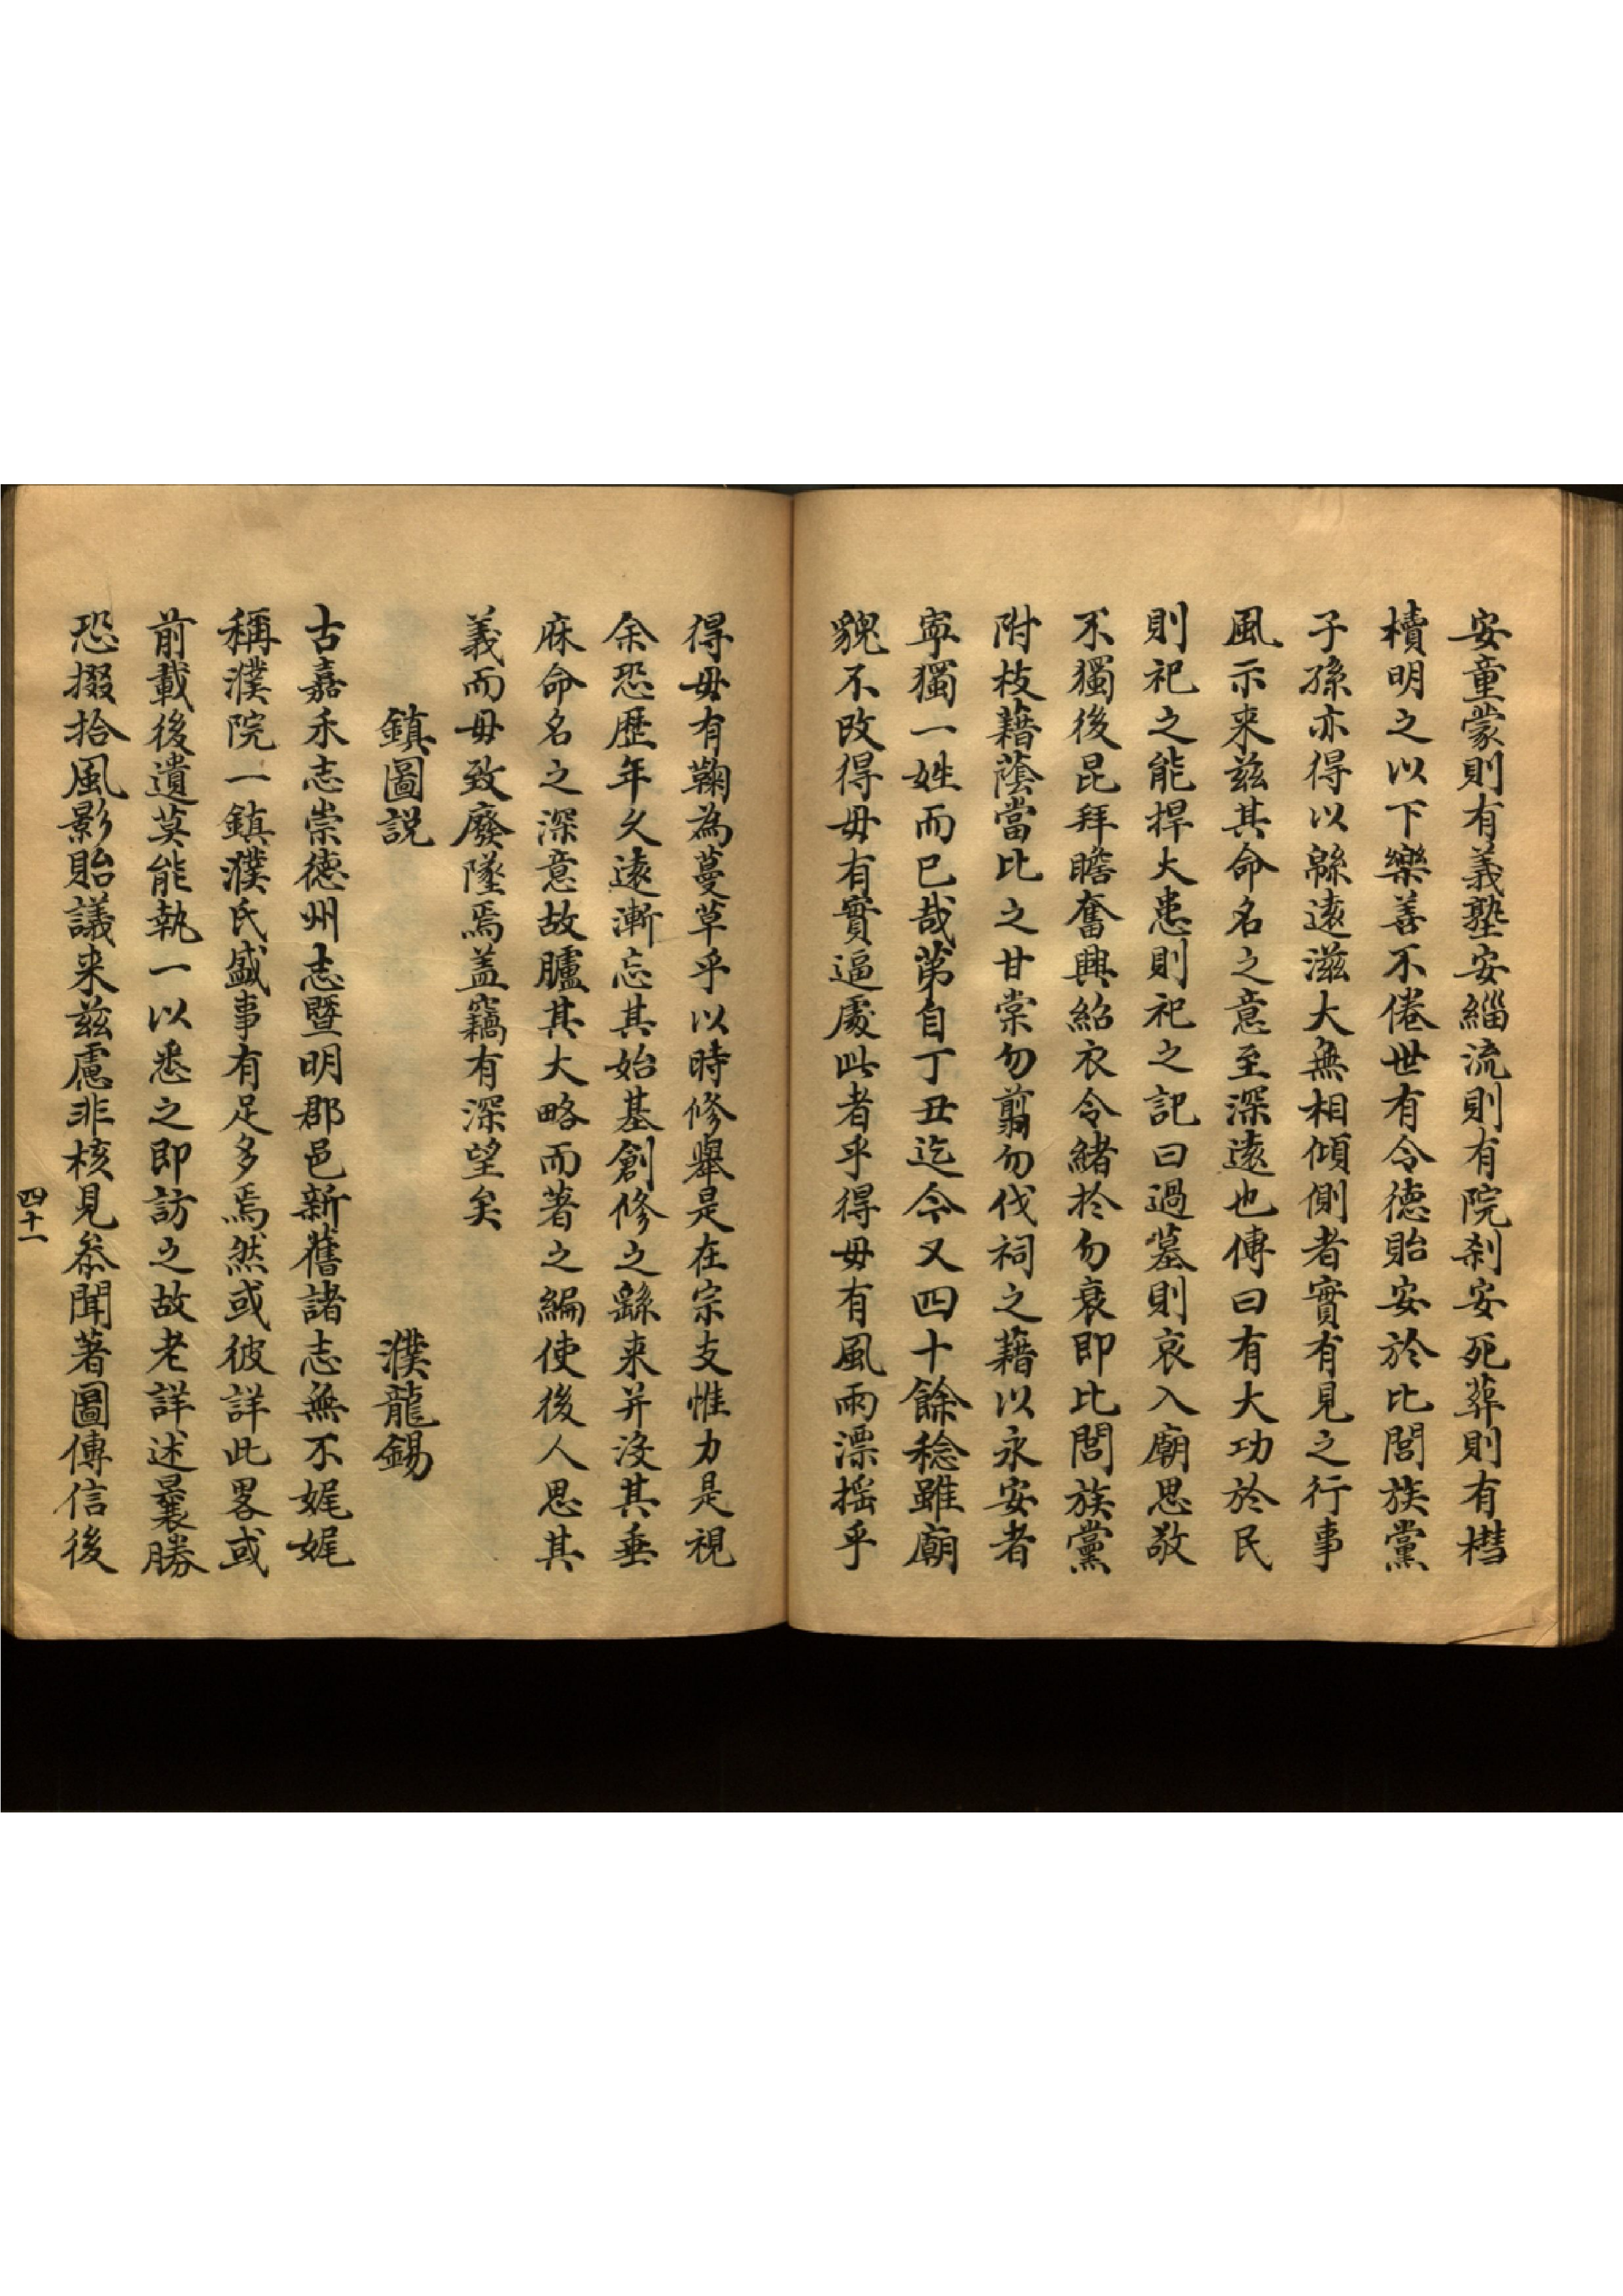 安童蒙則有義塾安緇流則有院刹安死葬則有槥
櫝明之以下樂善不倦世有令德貽安於比閭族黨
子孫亦得以緜遠滋大無相傾側者實有見之行事
風示来兹其命名之意至深遠也傳曰有大功於民
則祀之能捍大患則祀之記曰過墓則哀入廟思敬
不獨後昆拜瞻奮興紹衣令緒於勿衰即比閭族黨
附枝藉蔭當比之甘棠勿翦勿伐祠之藉以永安者
寕獨一姓而已哉第自丁丑迄今又四十餘稔雖廟
貌不改得毋有實逼處此者乎得毋有風雨漂摇乎
得毋有鞠為蔓草乎以時修舉是在宗支惟力是視
余恐歷年久遠漸忘其始基創修之繇来并没其垂
庥命名之深意故臚其大略而著之編使後人思其
義而毋致廢墜焉盖竊有深望矣
鎮圖説 濮龍錫
古嘉禾志崇德州志暨明郡邑新舊諸志無不娓娓
稱濮院一鎮濮氏盛事有足多焉然或彼詳此畧或
前載後遺莫能執一以悉之即訪之故老詳述曩勝
恐掇拾風影貽議来兹慮非核見叅聞著圖傳信後
四十一